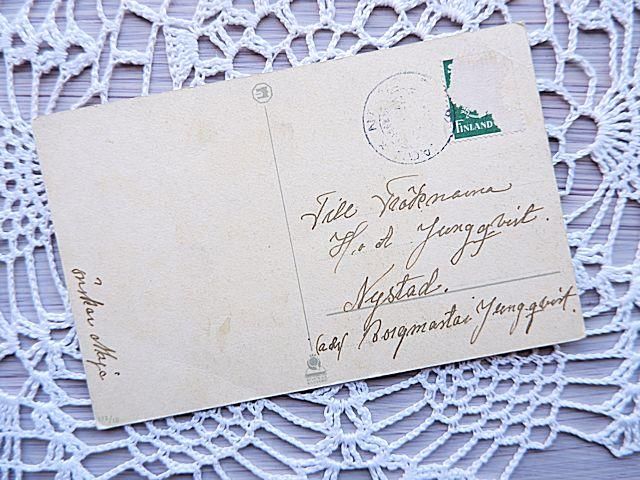 FINLAND
Till Fröknarna
H. o. A Jungqvist.
Nystad.
Borgmästar Jungqvist.
önskar Maja